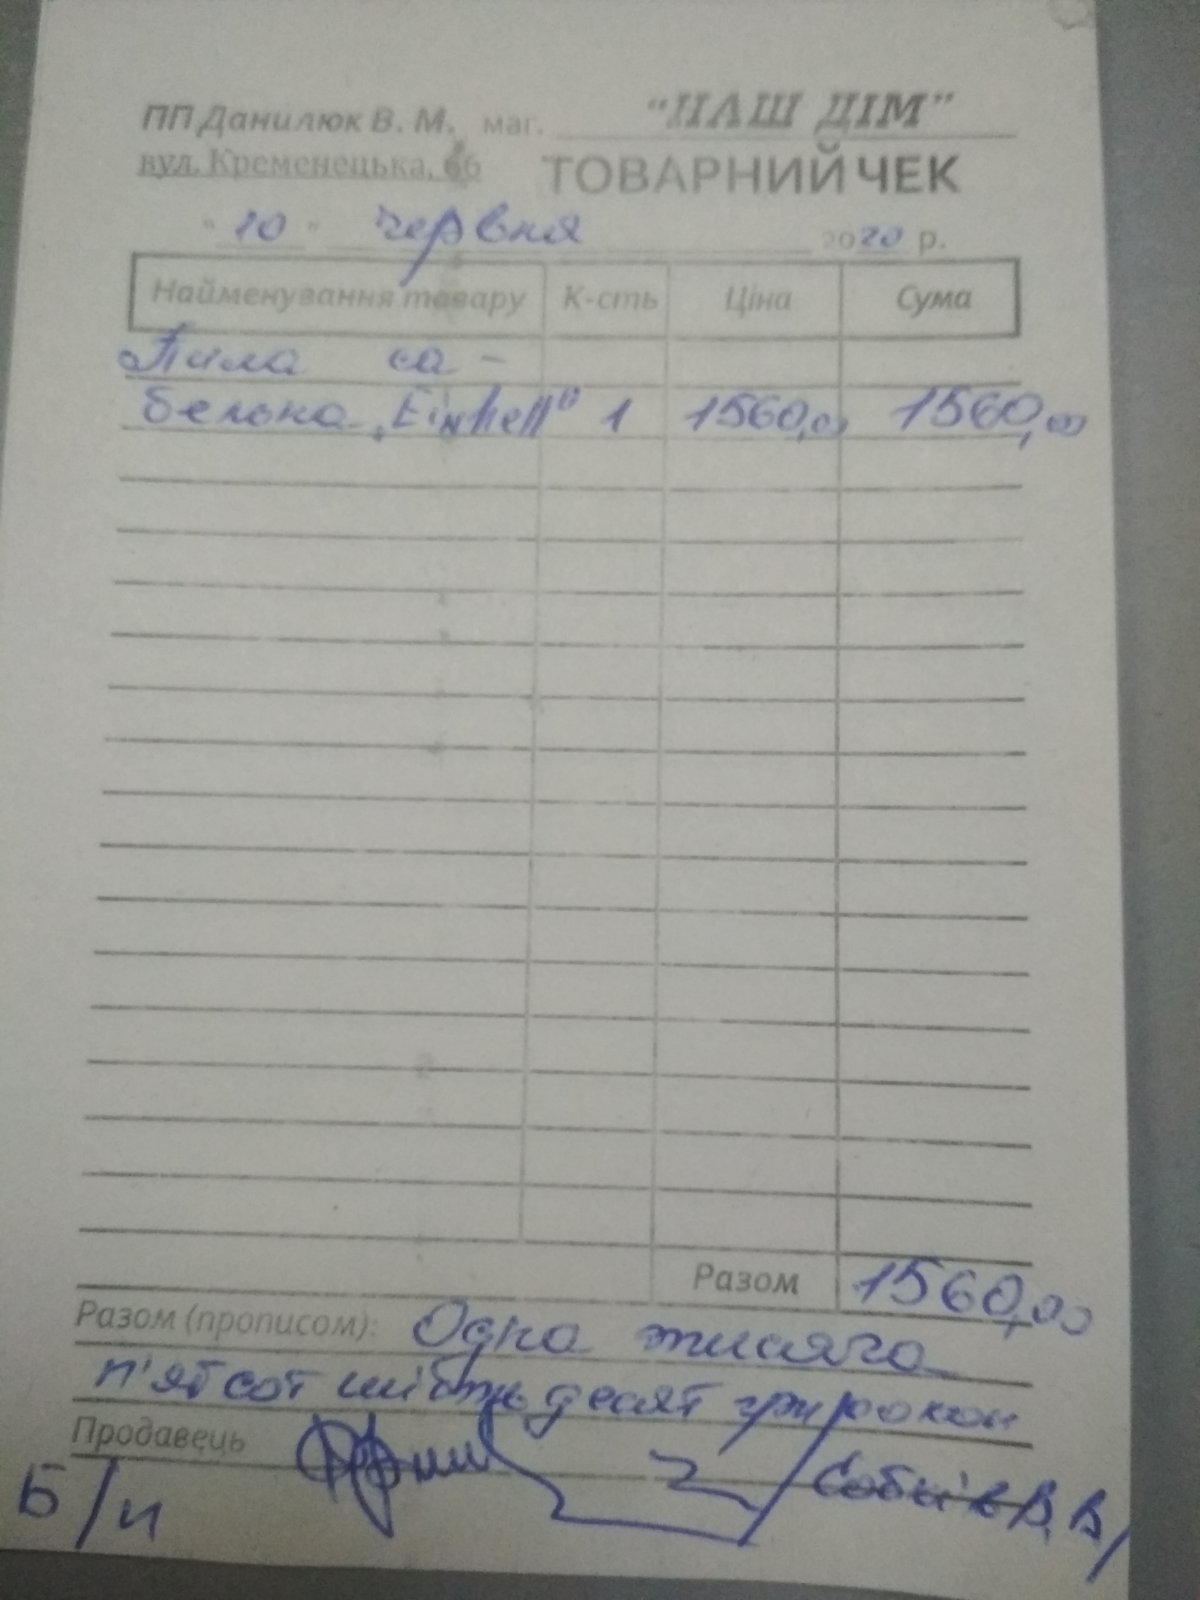 ПП Данилюк В. М. маг. "НАШ ДІМ"
вул. Кременецька, 66 ТОВАРНИЙ ЧЕК
"10" червня 2020 р.
Найменування товару К-сть Ціна Сума
Пила са-
бельна „Einhell" 1 1560,00 1560,00
Разом 1560,00
Разом (прописом): Одна тисяча
п'ятсот шістьдесят гривень
Продавець
Б/п В.В/